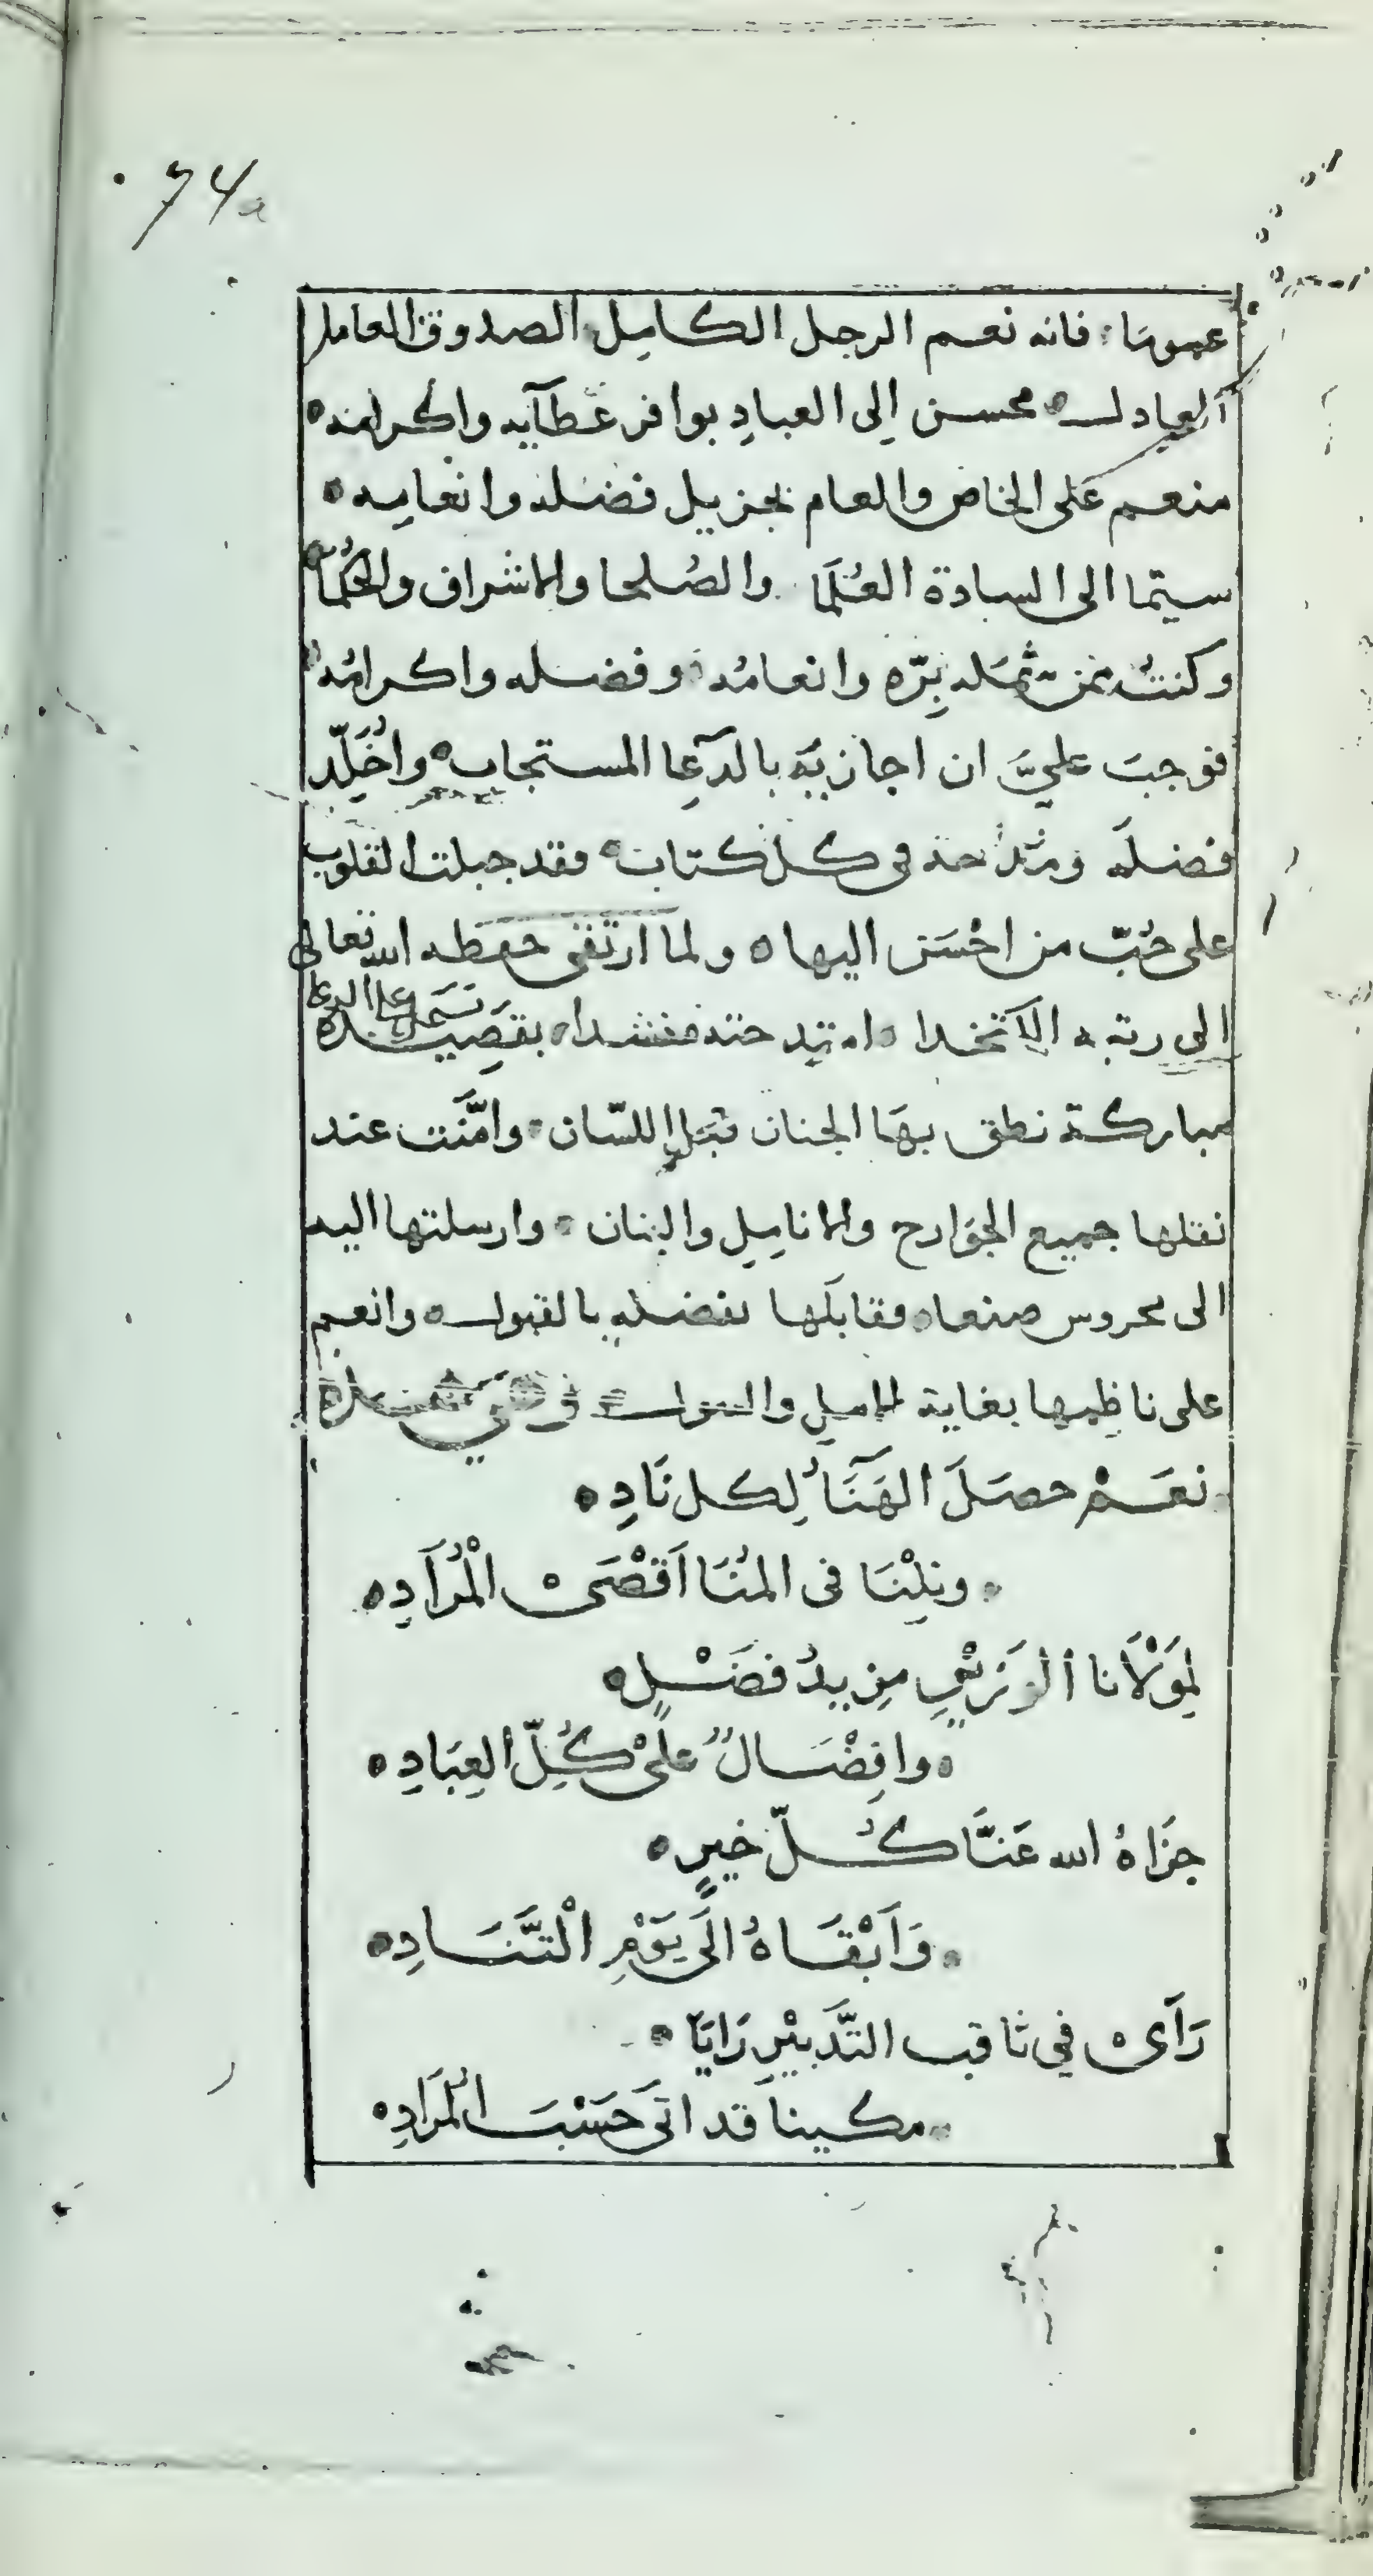 74a
عمومًا فانه نعم الرجل الكامل الصدوق العامل
العادل محسن إلى العبادِ بوافر عطآيه واكرامه
منعم على الخاص والعام بجزيل فضله وانعامِه
سيّما الى السادة العُلَمَا والصُلحا والاشراف والحُكمَا
وكنتُ ممن شمله بِرّه وانعامُه وفضله واكرامُه
فوجبَ عليَّ ان اجازيَه بالدعا المستجاب واخُلِّد
فضلَه ومدَائحه في كل كتاب فقد جبلت القلوب
على حُبّ من احْسَن اليها ولما ارتقى حفظه الله تعالى
الى رتبه امتدحته منشدا بقصِيدة
تشتمل على الدعا
مباركة نطق بهَا الجنان قبَل اللسّان وامَّنَت عند
نقلها جميع الجوَارح والاناملِ والبنان وارسلتها اليه
الى محروس صنعا فقابلَها بفضلهِ بالقبول وانعم
على ناظِمها بغاية الامل والسول
نعَمْ حصَلَ الهَنَآءُ لِكل نَادِ
ونِلْنَا فى المُنَا اَقْصَىْ الْمُرَادِ
لِمَوْلَانا الوزير مزيدُ فضَلٍ
وافِضْالٌ علىْ كُلِّ العِبَادِ
جزَاهُ الله عَنَّا كُلّ خيرٍ
وَاَبْقَاهُ الَى يَوْمِ الْتَّنَادِ
رَآىْ فِي ثاقب التَّدبيْرِ رَايًا
مكينا قد اتىَ حَسَبَ المُرَادِ